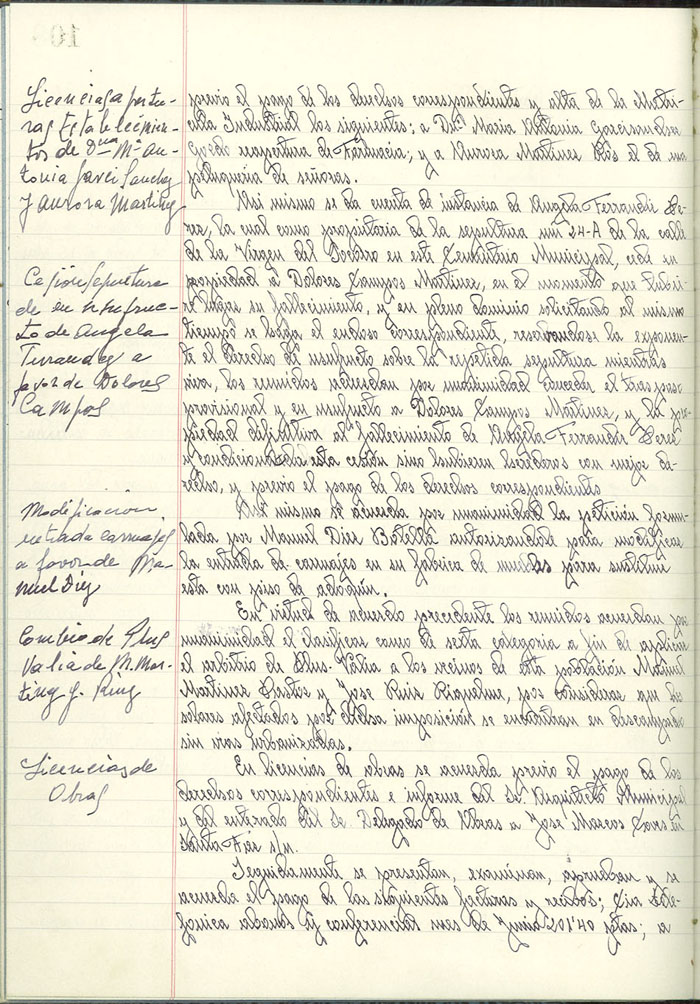 Licencias apertu-
ras Establecimien-
tos de Dña Mª An-
tonia Garci Sanchez
y Aurora Martinez
previo el pago de los derechos correspondientes y alta de la Matri-
cula Industrial los siguientes: a Dª Maria Antonia
reapertura de Farmacia; y a Aurora Martinez Rios el de una
peluqueria de señoras.
Asi mismo se da cuenta de instancia de Angela Ferrandiz Pe-
rez, la cual como propietaria de la sepultura nº 24-A de la calle
de la Virgen del Socorro en este Cementerio Municipal, cede en
propiedad a Dolores Campos Martinez, en el momento que tubie-
re lugar su fallecimiento, y en pleno dominio solicitando al mismo
tiempo se haga el endoso correspondiente, reservandose la exponen-
te el derecho de usufructo sobre la repetida sepultura mientras
viva, los reunidos acuerdan por unanimidad conceder el traspaso
provisional y en usufructo a Dolores Campos Martinez, y la pro-
piedad definitiva al fallecimiento de Angela Ferrandiz Perez
condicionada esta cesión sino hubieren herederos con mejor de-
recho, y previo el pago de los derechos correspondientes
Cesion Sepultura
de en usufruc-
to de Angela
a
favor de Dolores
Campos
Asi mismo se acuerda por unanimidad la petición formu-
lada por Manuel Diez Botella autorizandole para modificar
la entrada de carruajes en su fabrica de muebles para sustituir
esta con piso de adoquin.
Modificacion
entrada carruajes
a favor de Ma-
nuel Diez
En virtud de acuerdo precedente los reunidos acuerdan por
unanimidad el clasificar como de sexta categoria a fin de aplicar
el arbitrio de Plus-Valia a los vecinos de esta población Manuel
Martinez y Jose Ruiz Riquelme, por considerar que los
solares afectados por dicha imposición se encuentran en descampado
sin vias urbanizadas.
Cambio de Plus
Valia de M. Mar-
tinez y J. Ruiz
En licencias de obras se acuerda previo el pago de los
derechos correspondientes e informe del Sr. Arquitecto Municipal
y del enterado del Sr. Delegado de Obras a Jose Marcos en
Santa Fáz s/n.
Licencias de
Obras
Seguidamente se presentan, examinan, aprueban y se
acuerda el pago de las siguientes facturas y recibos; Cia Tele-
fonica abonos y conferencias mes de Junio 201'40 ptas; a